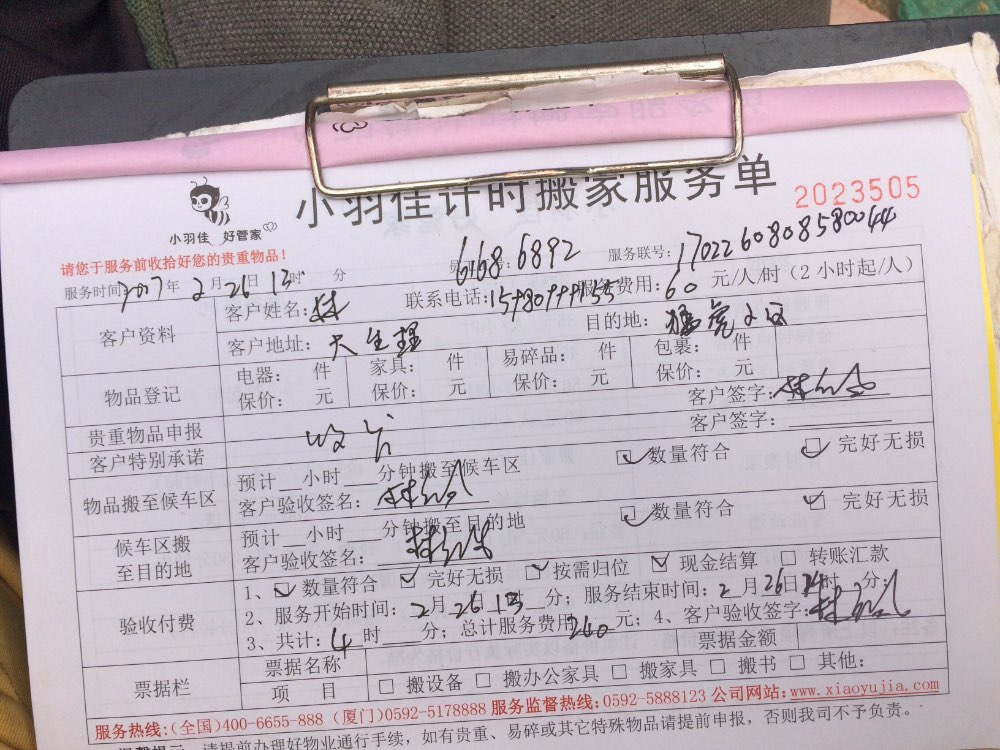 小羽佳计时搬家服务单
2023505
小羽佳 好管家
请您于服务前收拾好您的贵重物品!
6168 6892 服务联号:1702260808580044
服务时间:2017年2月26日13时 分
客户资料 客户姓名:林 联系电话: 服务费用:60元/人/时(2小时起/人)
客户地址:天生理 目的地:
物品登记 电器: 件 家具: 件 易碎品: 件 包裹: 件
保价: 元 保价: 元 保价: 元 保价: 元
贵重物品申报 客户签字:
客户特别承诺 客户签字:
物品搬至候车区 预计 小时 分钟搬至候车区 数量符合 完好无损
客户验收签名:
候车区搬至目的地 预计 小时 分钟搬至目的地 数量符合 完好无损
客户验收签名:
验收付费 1、数量符合 完好无损 按需归位 现金结算 转账汇款
2、服务开始时间:2月26日13时 分;服务结束时间:2月26日 时 分;
3、共计:4时 分;总计服务费用240元;4、客户验收签字:
票据栏 票据名称 票据金额
项 目 搬设备 搬办公家具 搬家具 搬书 其他:
服务热线:(全国)400-6655-888 (厦门)0592-5178888 服务监督热线:0592-5888123 公司网站:www.xiaoyujia.com
温馨提示 请提前办理好物业通行手续,如有贵重、易碎或其它特殊物品请提前申报,否则我司不予负责。